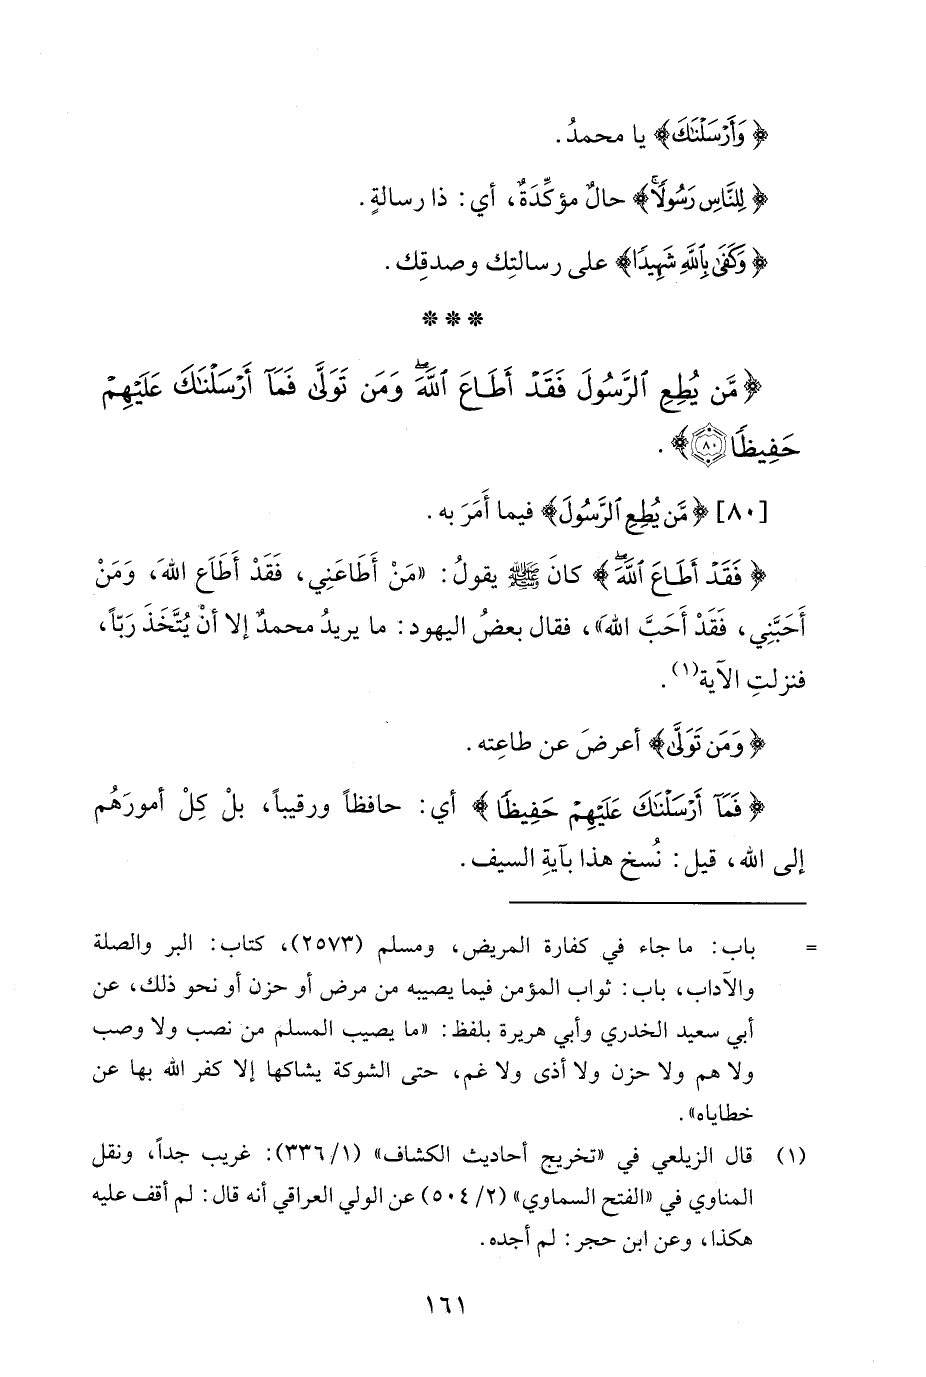 ﴿ وَأَرْسَلْنَٰكَ﴾ يا محمدُ .
﴿ لِلنَّاسِ رَسُولًاۚ﴾ حالٌ مؤكِّدَةٌ، أي: ذا رسالةٍ .
﴿ وَكَفَىٰ بِٱللَّهِ شَهِيدًا﴾ على رسالتِك وصدقِك .
* * *
﴿ مَّن يُطِعِ ٱلرَّسُولَ فَقَدْ أَطَاعَ ٱللَّهَۖ وَمَن تَوَلَّىٰ فَمَآ أَرْسَلْنَٰكَ عَلَيْهِمْ
حَفِيظًا ٨٠﴾ .
[٨٠] ﴿ مَّن يُطِعِ ٱلرَّسُولَ﴾ فيما أَمَرَ به .
﴿ فَقَدْ أَطَاعَ ٱللَّهَۖ ﴾ كانَ ﷺ يقولُ: «مَنْ أَطَاعَنِي، فَقَدْ أَطَاَع اللهَ، وَمَنْ
أَحَبَّنِي، فَقَدْ أَحَبَّ اللهَ»، فقال بعضُ اليهود: ما يريدُ محمدٌ إلا أنْ يُتَّخَذَ رَبّاً،
فنزلتِ الآية(١) .
﴿ وَمَن تَوَلَّىٰ﴾ أعرضَ عن طاعتِه .
﴿ فَمَآ أَرْسَلْنَٰكَ عَلَيْهِمْ حَفِيظًا ﴾ أي: حافظاً ورقيباً، بلْ كِلْ أمورَهُم
إلى الله، قيل: نُسخ هذا بآيةِ السيف .
= باب: ما جاء في كفارة المريض، ومسلم (٢٥٧٣)، كتاب: البر والصلة
والآداب، باب: ثواب المؤمن فيما يصيبه من مرض أو حزن أو نحو ذلك، عن
أبي سعيد الخدري وأبي هريرة بلفظ: «ما يصيب المسلم من نصب ولا وصب
ولا هم ولا حزن ولا أذى ولا غم، حتى الشوكة يشاكها إلا كفر الله بها عن
خطاياه» .
(١) قال الزيلعي في «تخريج أحاديث الكشاف» (١/ ٣٣٦): غريب جداً، ونقل
المناوي في «الفتح السماوي» (٢/ ٥٠٤) عن الولي العراقي أنه قال: لم أقف عليه
هكذا، وعن ابن حجر: لم أجده .
١٦١